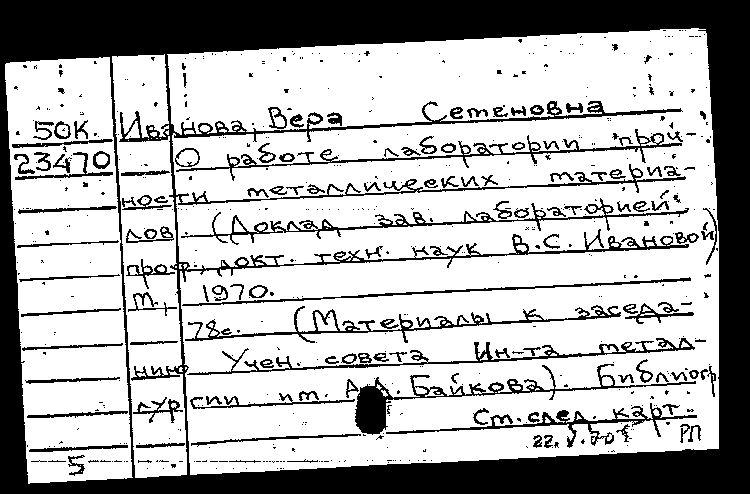 50К. Иванова, Вера Семеновна
23470 О работе лаборатории проч-
ности металлических материа-
лов. (Доклад зав. лабораторией
проф., докт. техн. наук В.С. Ивановой)
М., 1970.
78с. (Материалы к заседа-
нию Учен. совета Ин-та метал-
лургии им. А.А. Байкова). Библиогр.
См. след. карт.
22.V.70г РП
5